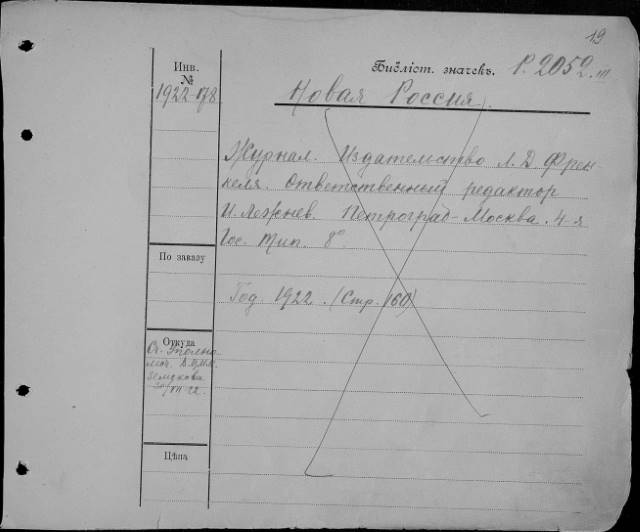 19
Инв.
№
1922-178
Библіот. значекъ. Р. 2052. III
Новая Россия.
Журнал. Издательство Л. Д. Френ
келя. Ответственный редактор
И. Лежнев. Петроград-Москва. 4-я
Гос. Тип. 8°
По заказу
Год. 1922. (Стр. 160)
Откуда
22.
Цѣна